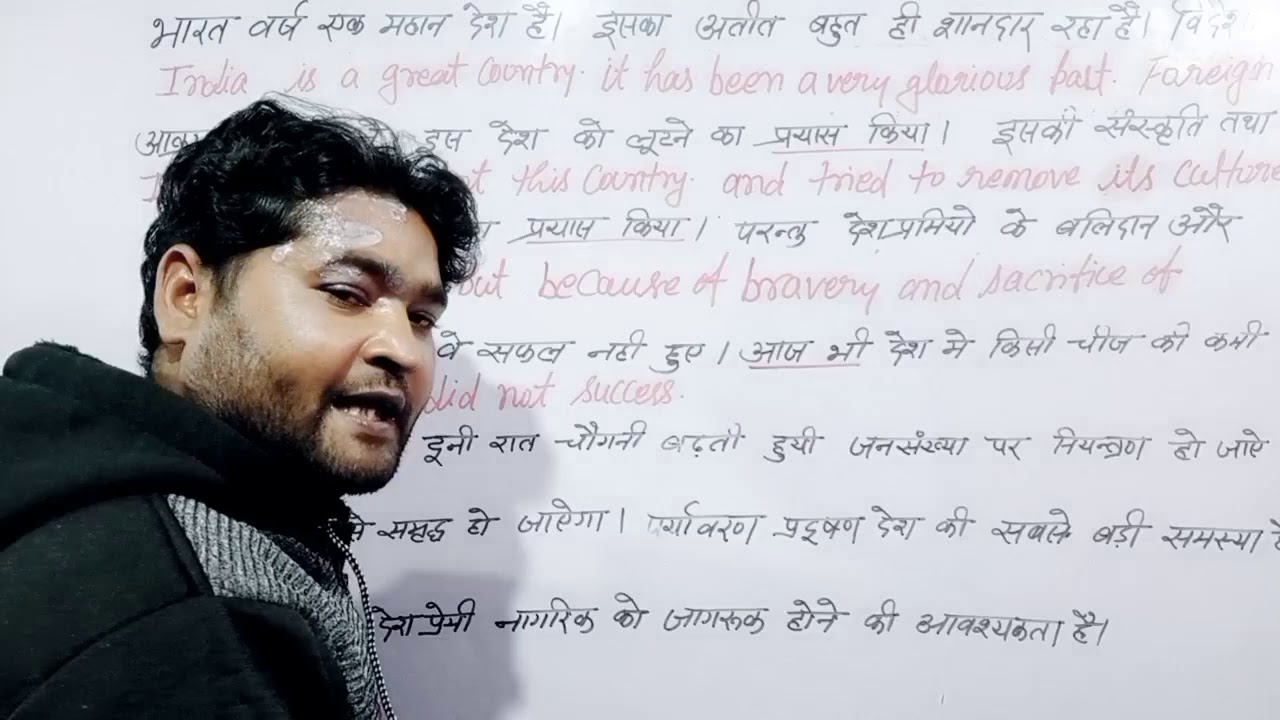 भारत वर्ष एक महान देश है। इसका अतीत बहुत ही शानदार रहा है।
India is a great Country. it has been a very glorious past. Foreign
इस देश को लूटने का प्रयास किया। इसकी संस्कृति तथा
this Country. and tried to remove its culture
प्रयास किया। परन्तु देशप्रमियो के बलिदान और
but because of bravery and sacrifice of
वे सफल नही हुए। आज भी देश मे किसी चीज की कमी
did not success.
रात चौगनी बढ़ती हुयी जनसंख्या पर नियन्त्रण हो जाऐ
समृद्ध हो जाऐगा। पर्यावरण प्रदूषण देश की सबसे बड़ी समस्या
देशप्रेमी नागरिक को जागरूक होने की आवश्यकता है।